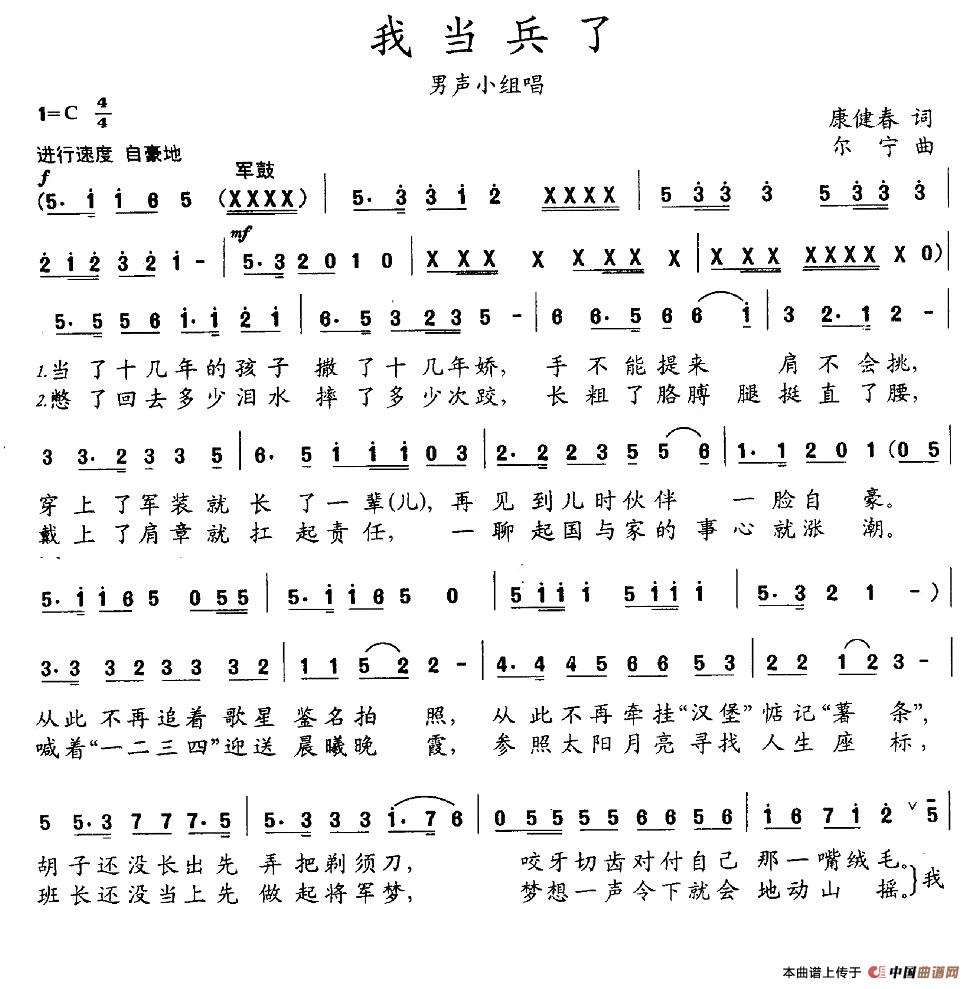 我当兵了
男声小组唱
1=C 4/4
康健春 词
进行速度 自豪地
尔 宁 曲
f 军鼓
(5· i i 6 5 (X X X X) | 5· 3 3 i 2 X X X X | 5 3 3 3 5 3 3 3 |
mf
2 i 2 3 2 i - | 5· 3 2 0 1 0 | X X X X X X X X | X X X X X X X X 0) |
5· 5 5 6 i· i 2 i | 6· 5 3 2 3 5 - | 6 6· 5 6 6 6 i | 3 2· 1 2 - |
1.当了十几年的孩子 撒了十几年娇, 手不能提来 肩不会挑,
2.憋了回去多少泪水 摔了多少次跤, 长粗了胳膊 腿挺直了腰,
3 3· 2 3 3 5 | 6· 5 i i i 0 3 | 2· 2 2 3 5 5 6 | 1· 1 2 0 1 (0 5 |
穿上了军装就长了一辈(儿), 再见到儿时伙伴 一脸自豪。
戴上了肩章就扛起责任, 一聊起国与家的事心就涨潮。
5· i i 6 5 0 5 5 | 5· i i 6 5 0 | 5 i i i 5 i i i | 5· 3 2 1 - ) |
3· 3 3 2 3 3 3 2 | 1 1 5 2 2 - | 4· 4 4 5 6 6 5 | 2 2 1 2 3 - |
从此不再追着歌星鉴名拍照, 从此不再牵挂“汉堡”惦记“薯条”,
喊着“一二三四”迎送晨曦晚霞, 参照太阳月亮寻找人生座标,
5 5· 3 7 7 7· 5 | 5· 3 3 3 i· 7 6 | 0 5 5 5 5 6 6 5 6 | i 6 7 i 2 ∨ 5 |
胡子还没长出先弄把剃须刀, 咬牙切齿对付自己那一嘴绒毛。
班长还没当上先做起将军梦, 梦想一声令下就会地动山摇。}我
本曲谱上传于 中国曲谱网